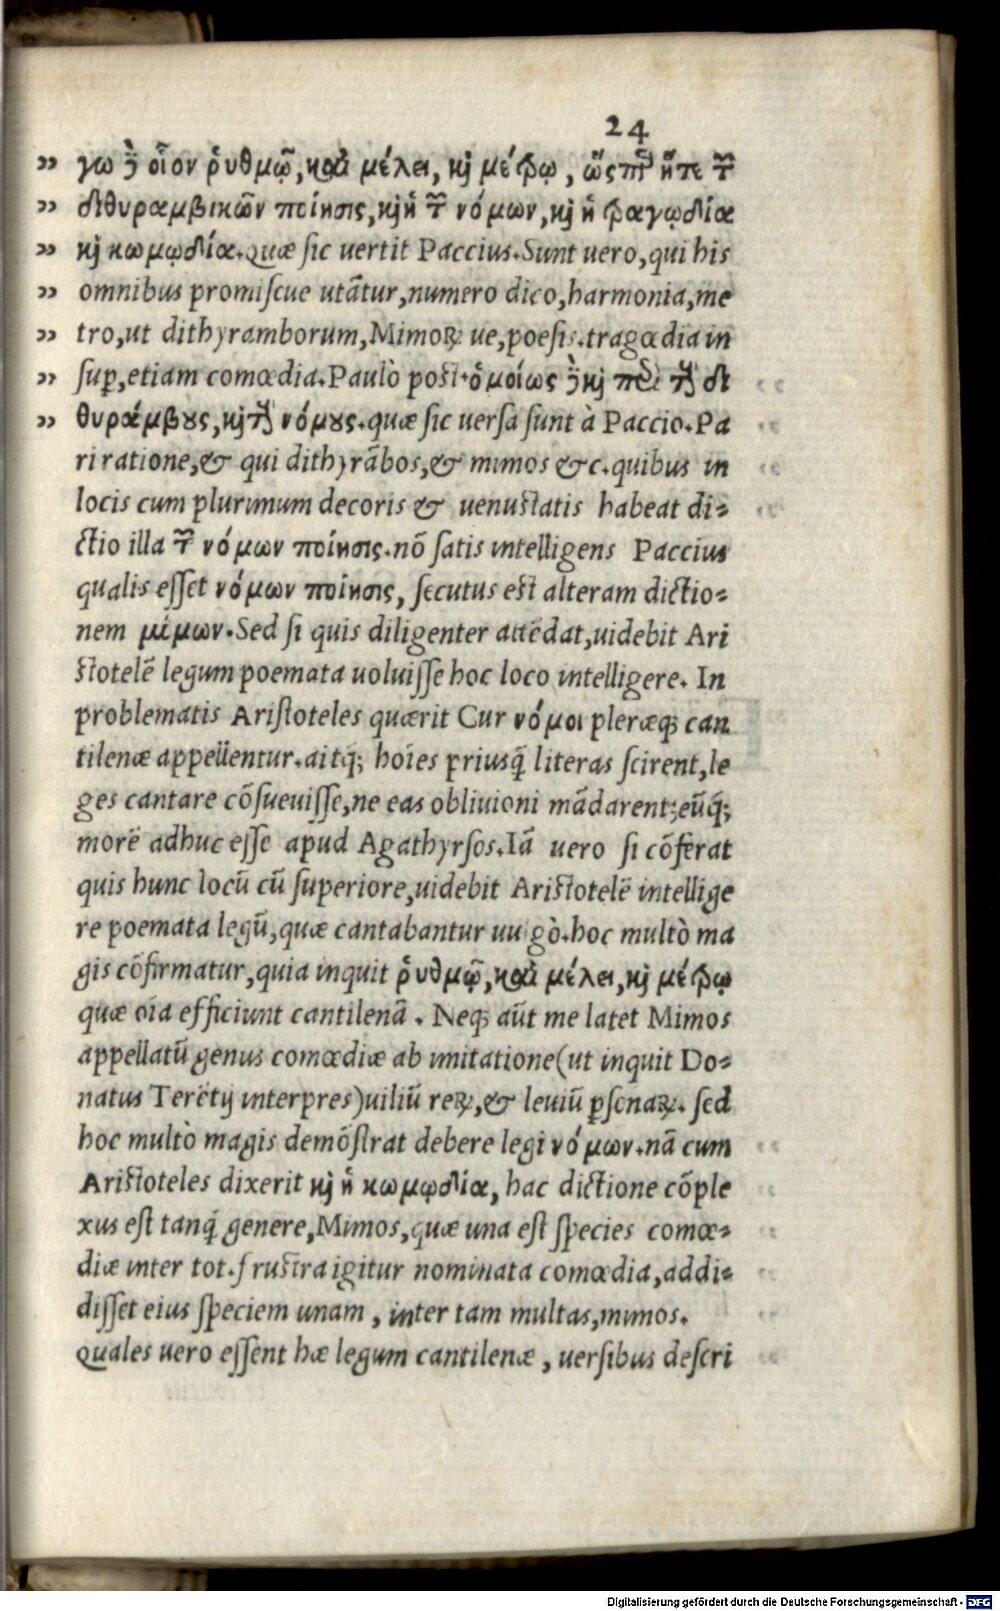 24
„ γω δὲ οἷον ῥυθμῷ, καὶ μέλει, κ̀ μέτρῳ, ὥσπερ ἥτε τῶν
„ διθυραμβικῶν ποίησις, κ̀ ἡ τῶν νόμων, κ̀ ἡ τραγῳδία
„ κ̀ κωμῳδία. Quæ sic uertit Paccius. Sunt uero, qui his
„ omnibus promiscue utātur, numero dico, harmonia, me
„ tro, ut dithyramborum, Mimoꝝ ue, poesis. tragœdia in
„ suꝑ, etiam comœdia. Paulò pòst. ὁμοίως δὲ κ̀ περὶ τοὺς δι
„ θυράμβȣς, κ̀ τοὺς νόμȣς. quæ sic uersa sunt à Paccio. Pa
ri ratione, & qui dithyrābos, & mimos &c. quibus in
locis cum plurimum decoris & uenustatis habeat di-
ctio illa τῶν νόμων ποίησις. nō satis intelligens Paccius
qualis esset νόμων ποίησις, secutus est alteram dictio-
nem μίμων. Sed si quis diligenter attēdat, uidebit Ari
stotelē legum poemata uoluisse hoc loco intelligere. In
problematis Aristoteles quærit Cur νόμοι pleræq; can
tilenæ appellentur. ait q́; hoīes priusq̄ literas scirent, le
ges cantare cōsueuisse, ne eas obliuioni mādarent; eūq́;
morē adhuc esse apud Agathyrsos. Iā uero si cōferat
quis hunc locū cū superiore, uidebit Aristotelē intellige
re poemata legū, quæ cantabantur uulgò. hoc multò ma
gis cōfirmatur, quia inquit ῥυθμῷ, καὶ μέλει, κ̀ μέτρῳ
quæ oīa efficiunt cantilenā. Neq; aūt me latet Mimos
appellatū genus comœdiæ ab imitatione (ut inquit Do-
natus Terētij interpres) uiliū reꝝ, & leuiū ꝑsonaꝝ. sed
hoc multò magis demōstrat debere legi νόμων. nā cum
Aristoteles dixerit κ̀ ἡ κωμῳδία, hac dictione cōple
xus est tanq̄ genere, Mimos, quæ una est species comœ-
diæ inter tot. frustra igitur nominata comœdia, addi-
disset eius speciem unam, inter tam multas, mimos.
Quales uero essent hæ legum cantilenæ, uersibus descri
Digitalisierung gefördert durch die Deutsche Forschungsgemeinschaft - DFG